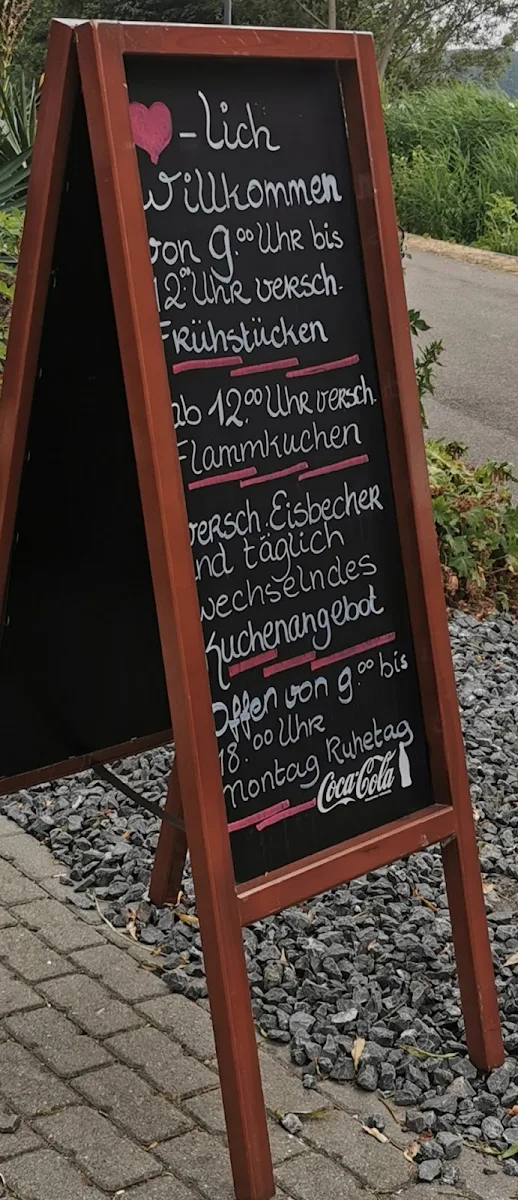 -lich
Willkommen
von 9.00 Uhr bis
12.00 Uhr versch.
Frühstücken
ab 12.00 Uhr versch.
Flammkuchen
versch. Eisbecher
und täglich
wechselndes
Kuchenangebot
Offen von 9.00 bis
18.00 Uhr
Montag Ruhetag
Coca-Cola